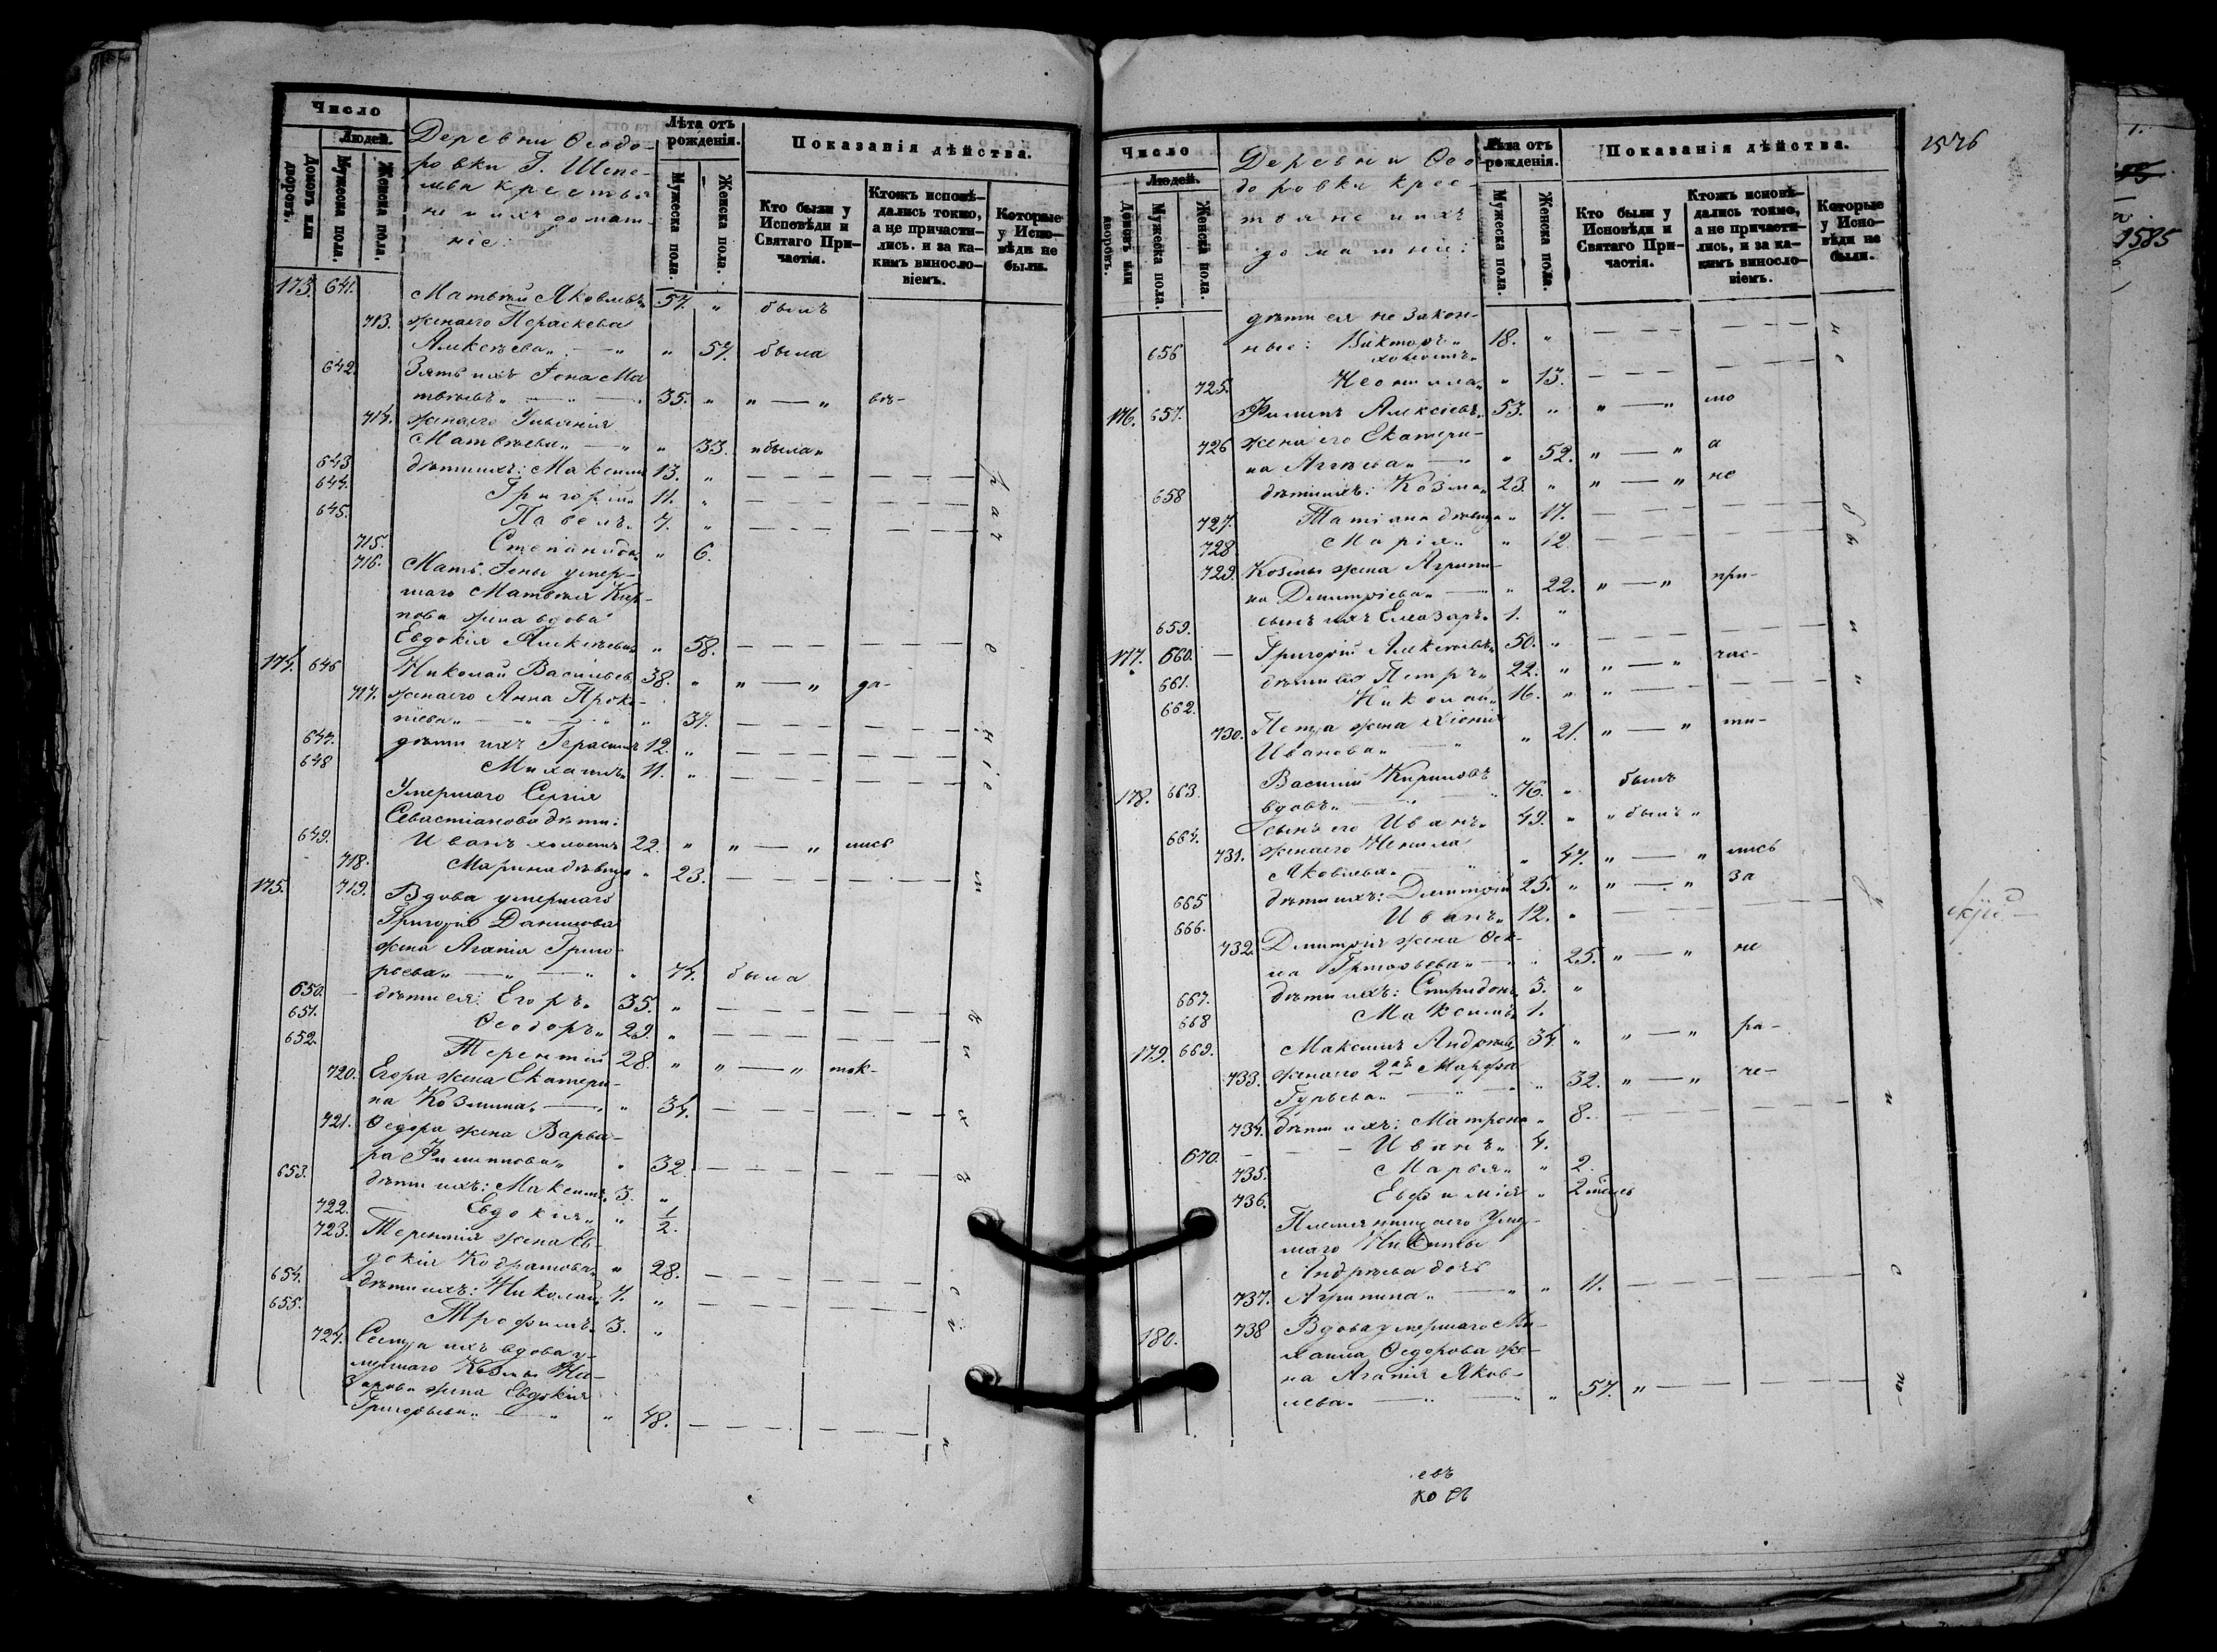 Число
Людей.
Домовъ или дворовъ.
Мужеска пола.
Женска пола.
Деревни Ѳеодо-
ровки Г. Шепе-
лева крестья
не и ихъ домаш-
ніе:
Лѣта отъ рожденія.
Мужеска пола.
Женска пола.
Показанія дѣйства.
Кто были у Исповѣди и Святаго При-частія.
Ктожъ исповѣ-дались токмо, а не причасти-лись. и за ка-кимъ винословіемъ.
Которые у Испо-вѣди не были.
173. 641. Матвей Яковлевъ 57. " былъ
713. жена его Параскева
Алексѣева " — " " 57. была
642. Зять ихъ Іона Ма
твѣевъ " — " — 35. " " — " въ-
714. жена его Ульянія
Матвѣева " — " " 33. "была"
643. дѣти ихъ: Максимъ 13. " — — —
644. Григорій 11. " — — —
645. Павелъ 7. " — — —
715. Степанида " 6.
716. Мать Іоны умер-
шаго Матвѣя Кар-
пова жена вдова
Евдокія Алексѣева " 58. — — —
174. 646 Николай Васильевъ 38. " " — " да-
717. жена его Анна Проко-
піева " — " — " " 37. — — —
647. дѣти ихъ Герасимъ 12. " — — —
648 Михаилъ 11. " — — —
Умершаго Сергія
Севастіанова дѣти:
649. Иванъ холостъ 22. " " — " лись
718. Марина дѣвица " 23. — — —
175. 719. Вдова умершаго
Григорія Данилова
жена Агапія Григо-
рьева " — " — " " 74. была
650. — дѣти ея: Егоръ 35. " — — —
651. Ѳеодоръ 29. " — — —
652. Терентій 28. " " — " ток-
720. Егора жена Екатери-
на Козмина — " 34. — — —
721. Ѳедора жена Варва-
ра Филиппова " " 32. — — —
653. дѣти ихъ: Максимъ 3. "
722. Евдокія " " 1/2.
723. Терентія жена Ев-
докія Кодратова " " 28. — — —
654. дѣти ихъ: Николай 7. " — — —
655. Трофимъ 3. "
724. Сестра ихъ вдова у-
мершаго Козмы На-
зарова жена Евдокія
Григорьева " — " " 48. — — —
1576
Число
Людей.
Домовъ или дворовъ.
Мужеска пола.
Женска пола.
Деревни Ѳео-
доровки крес-
тьяне и ихъ
домашніе:
Лѣта отъ рожденія.
Мужеска пола.
Женска пола.
Показанія дѣйства.
Кто были у Исповѣди и Святаго При-частія.
Ктожъ исповѣ-дались токмо, а не причасти-лись, и за ка-кимъ винословіемъ.
Которые у Испо-вѣди не были.
дѣти ея незакон-
656 ные: Викторъ 18. " — — —
холостъ
725. Неонила " 13. — — —
176. 657. Филипъ Алексіевъ 53. " " — " мо
726 жена его Екатери-
на Аггѣева " — " " 52. " — " а
658 дѣти ихъ: Козма 23. " " — " не
727. Татіана дѣвица " 17. — — —
728 Марія " " 12 — — —
729. Козмы жена Агрипи-
на Димитріева " — " 22. " — " при-
659. сынъ ихъ Елеазаръ 1. "
177. 660. — Григорій Алексѣевъ 50. " — — —
661. дѣти его Петръ 22. " " — " час-
662. Николай 16. " " — — —
730. Петра жена Хіонія
Иванова " — " " 21. " — " ти-
178. 663. Василій Кириловъ
вдовъ " — " — " 76. " былъ
664. сынъ его Иванъ 49. " "былъ"
731. жена его Ненила
Яковлева " " 47. " — " лись
665 дѣти ихъ: Димитрій 25. " " — " за
666. Иванъ 12. " — — —
732. Димитрія жена Ѳек-
ла Григорьева " — " 25. " — " не
667. дѣти ихъ: Спиридонъ 3. "
668 Максимъ 1.
179. 669. Максимъ Андреевъ 34. " " — " ра-
733. жена его 2я Марфа
Гурьева " — " " 32. " — " че-
734. дѣти ихъ: Матрена " 8. — — —
670. — Иванъ 4.
735. Марья " " 2.
736. Евфимія " 2 мѣсяц
Племянница его Умер-
шаго Никиты
Андреева дочь
737. Агрипина " — " " 11. — — —
180. 738 Вдова умершаго Ми-
хаила Ѳедорова же-
на Агапія Яков-
лева " — " — " " 57. " — — —
евъ
1.
1585